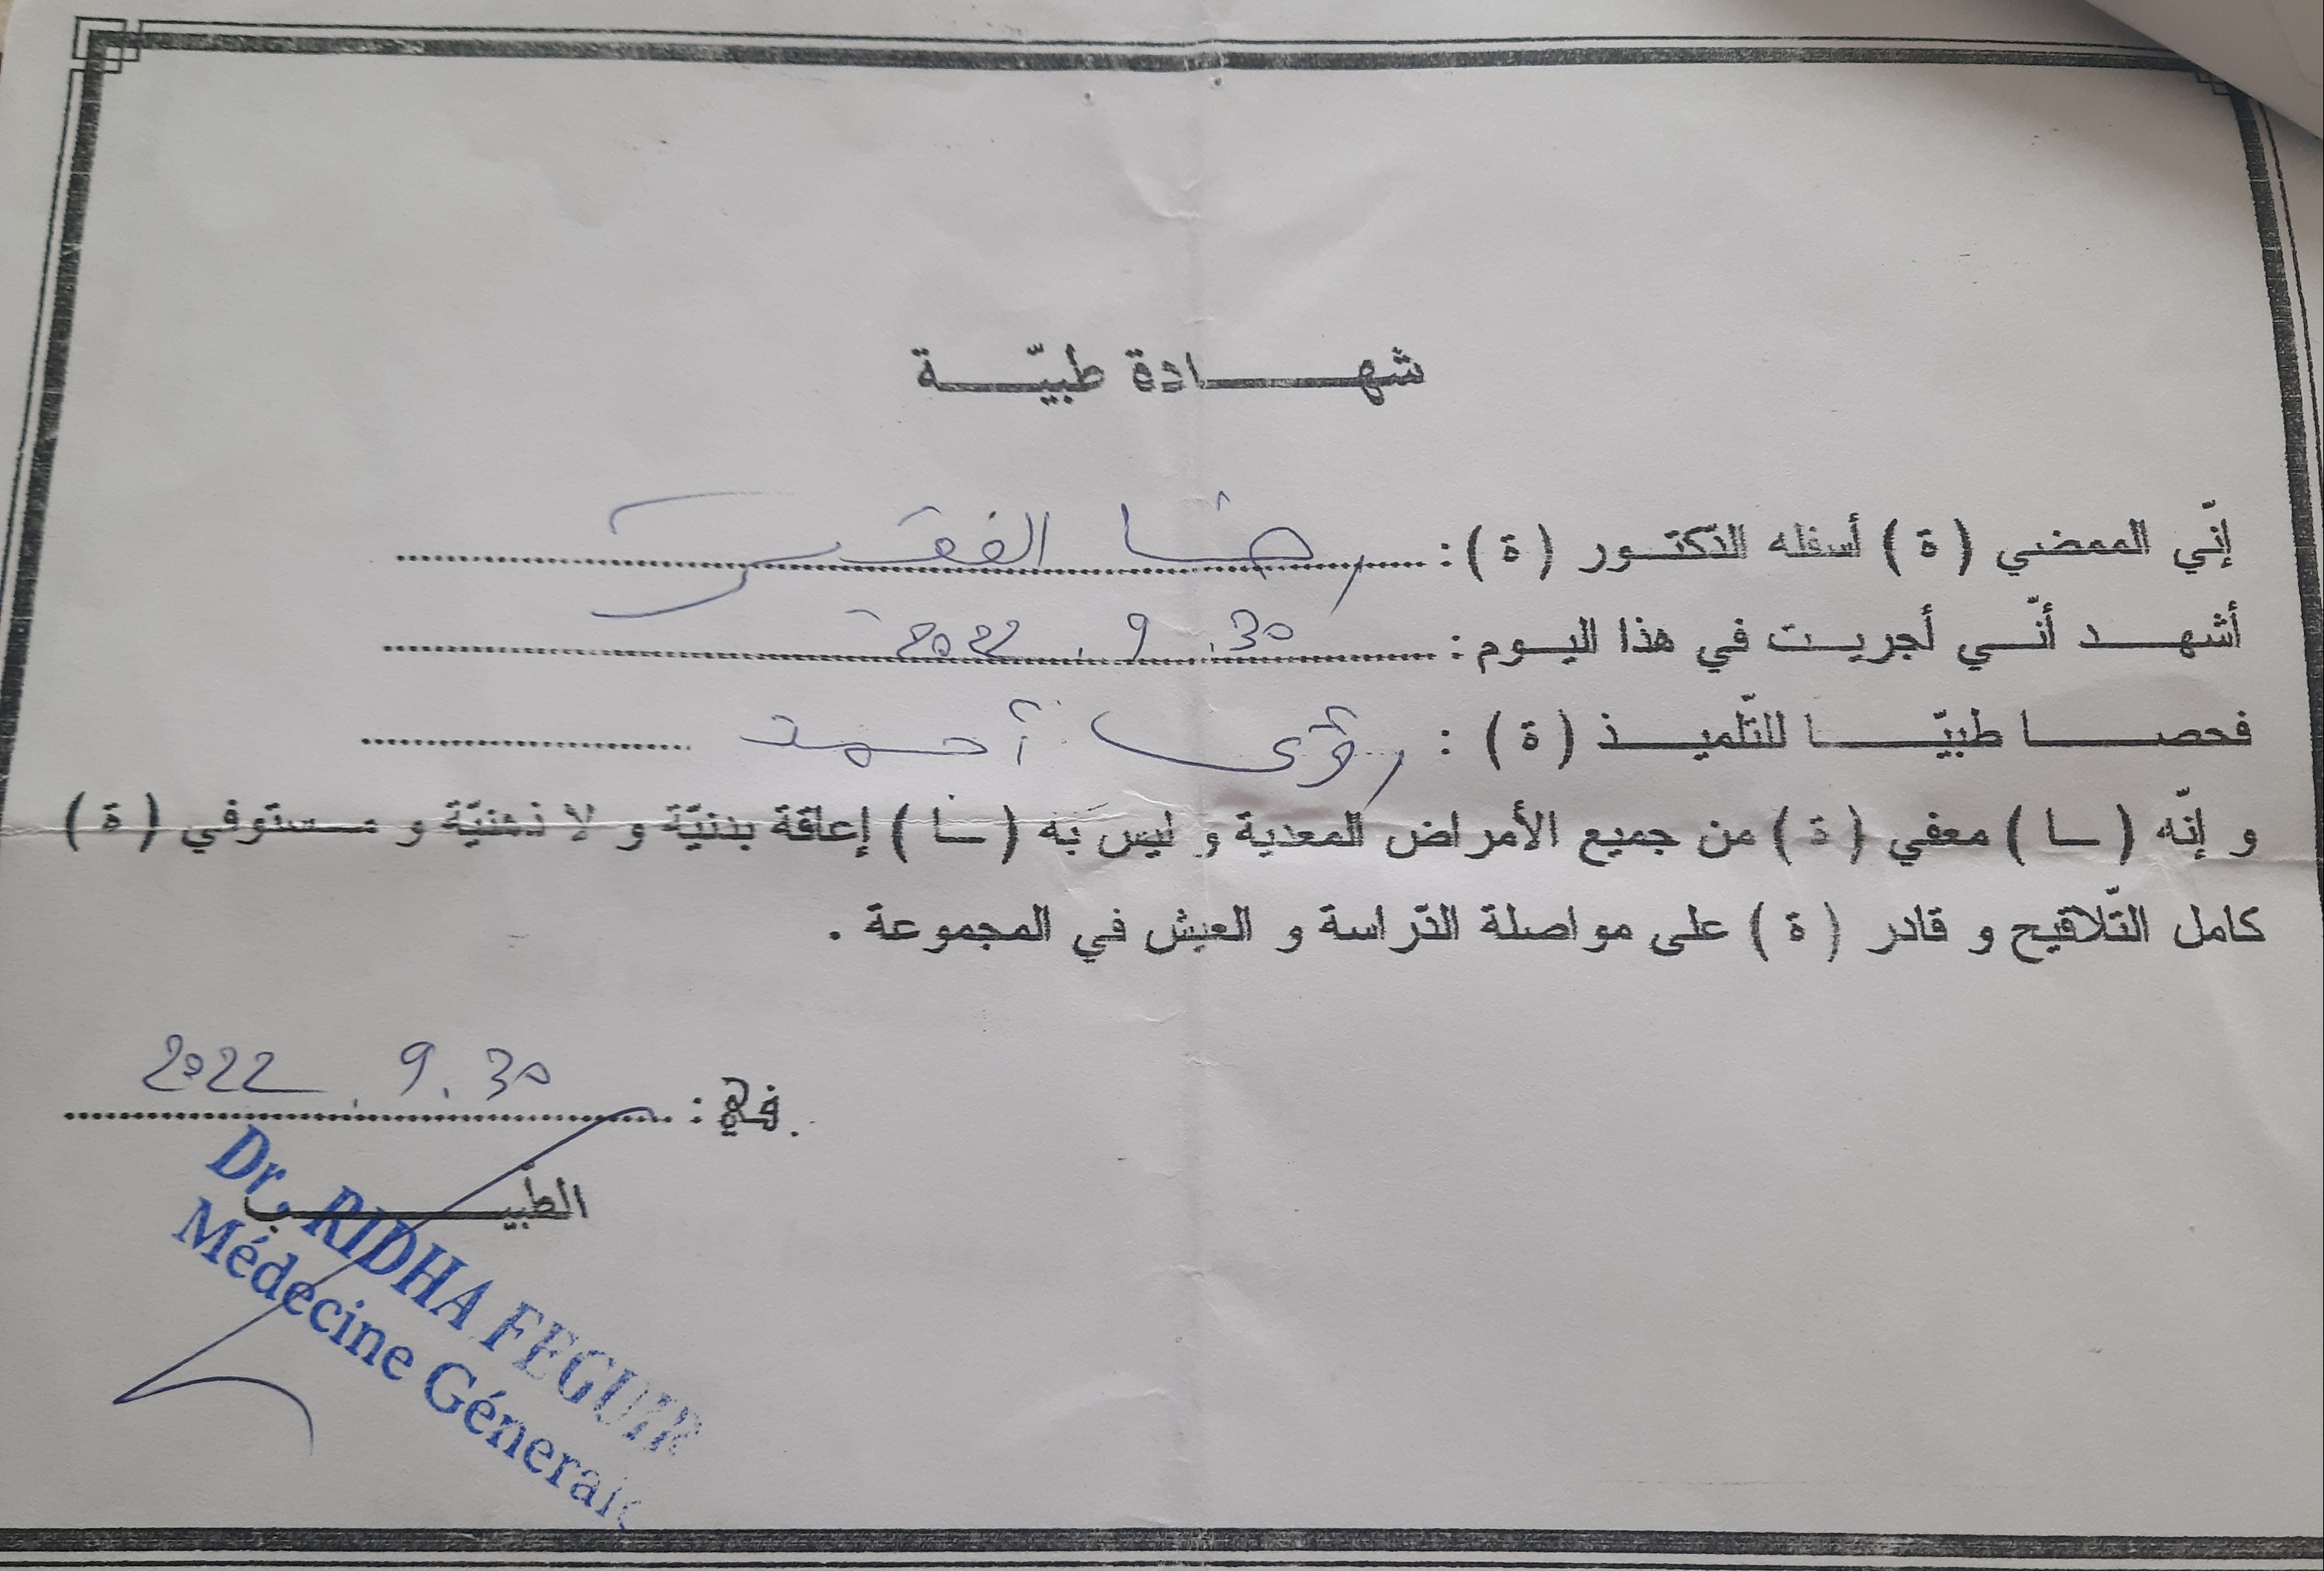 شهادة طبيّة
إنّي الممضي (ة) أسفله الدّكتور (ة) : رضا الفقير
أشهد أنّي أجريت في هذا اليوم : 30 . 9 . 2022
فحصا طبيّا للتّلميذ (ة) : رؤى أحمد
و إنّه (ـا) معفي (ة) من جميع الأمراض المعدية و ليس به (ـا) إعاقة بدنيّة و لا ذهنيّة و مستوفي (ة)
كامل التّلاقيح و قادر (ة) على مواصلة الدّراسة و العيش في المجموعة .
في : 30 . 9 . 2022
الطّبيب
Dr. RIDHA FEGUIR
Médecine Génerale